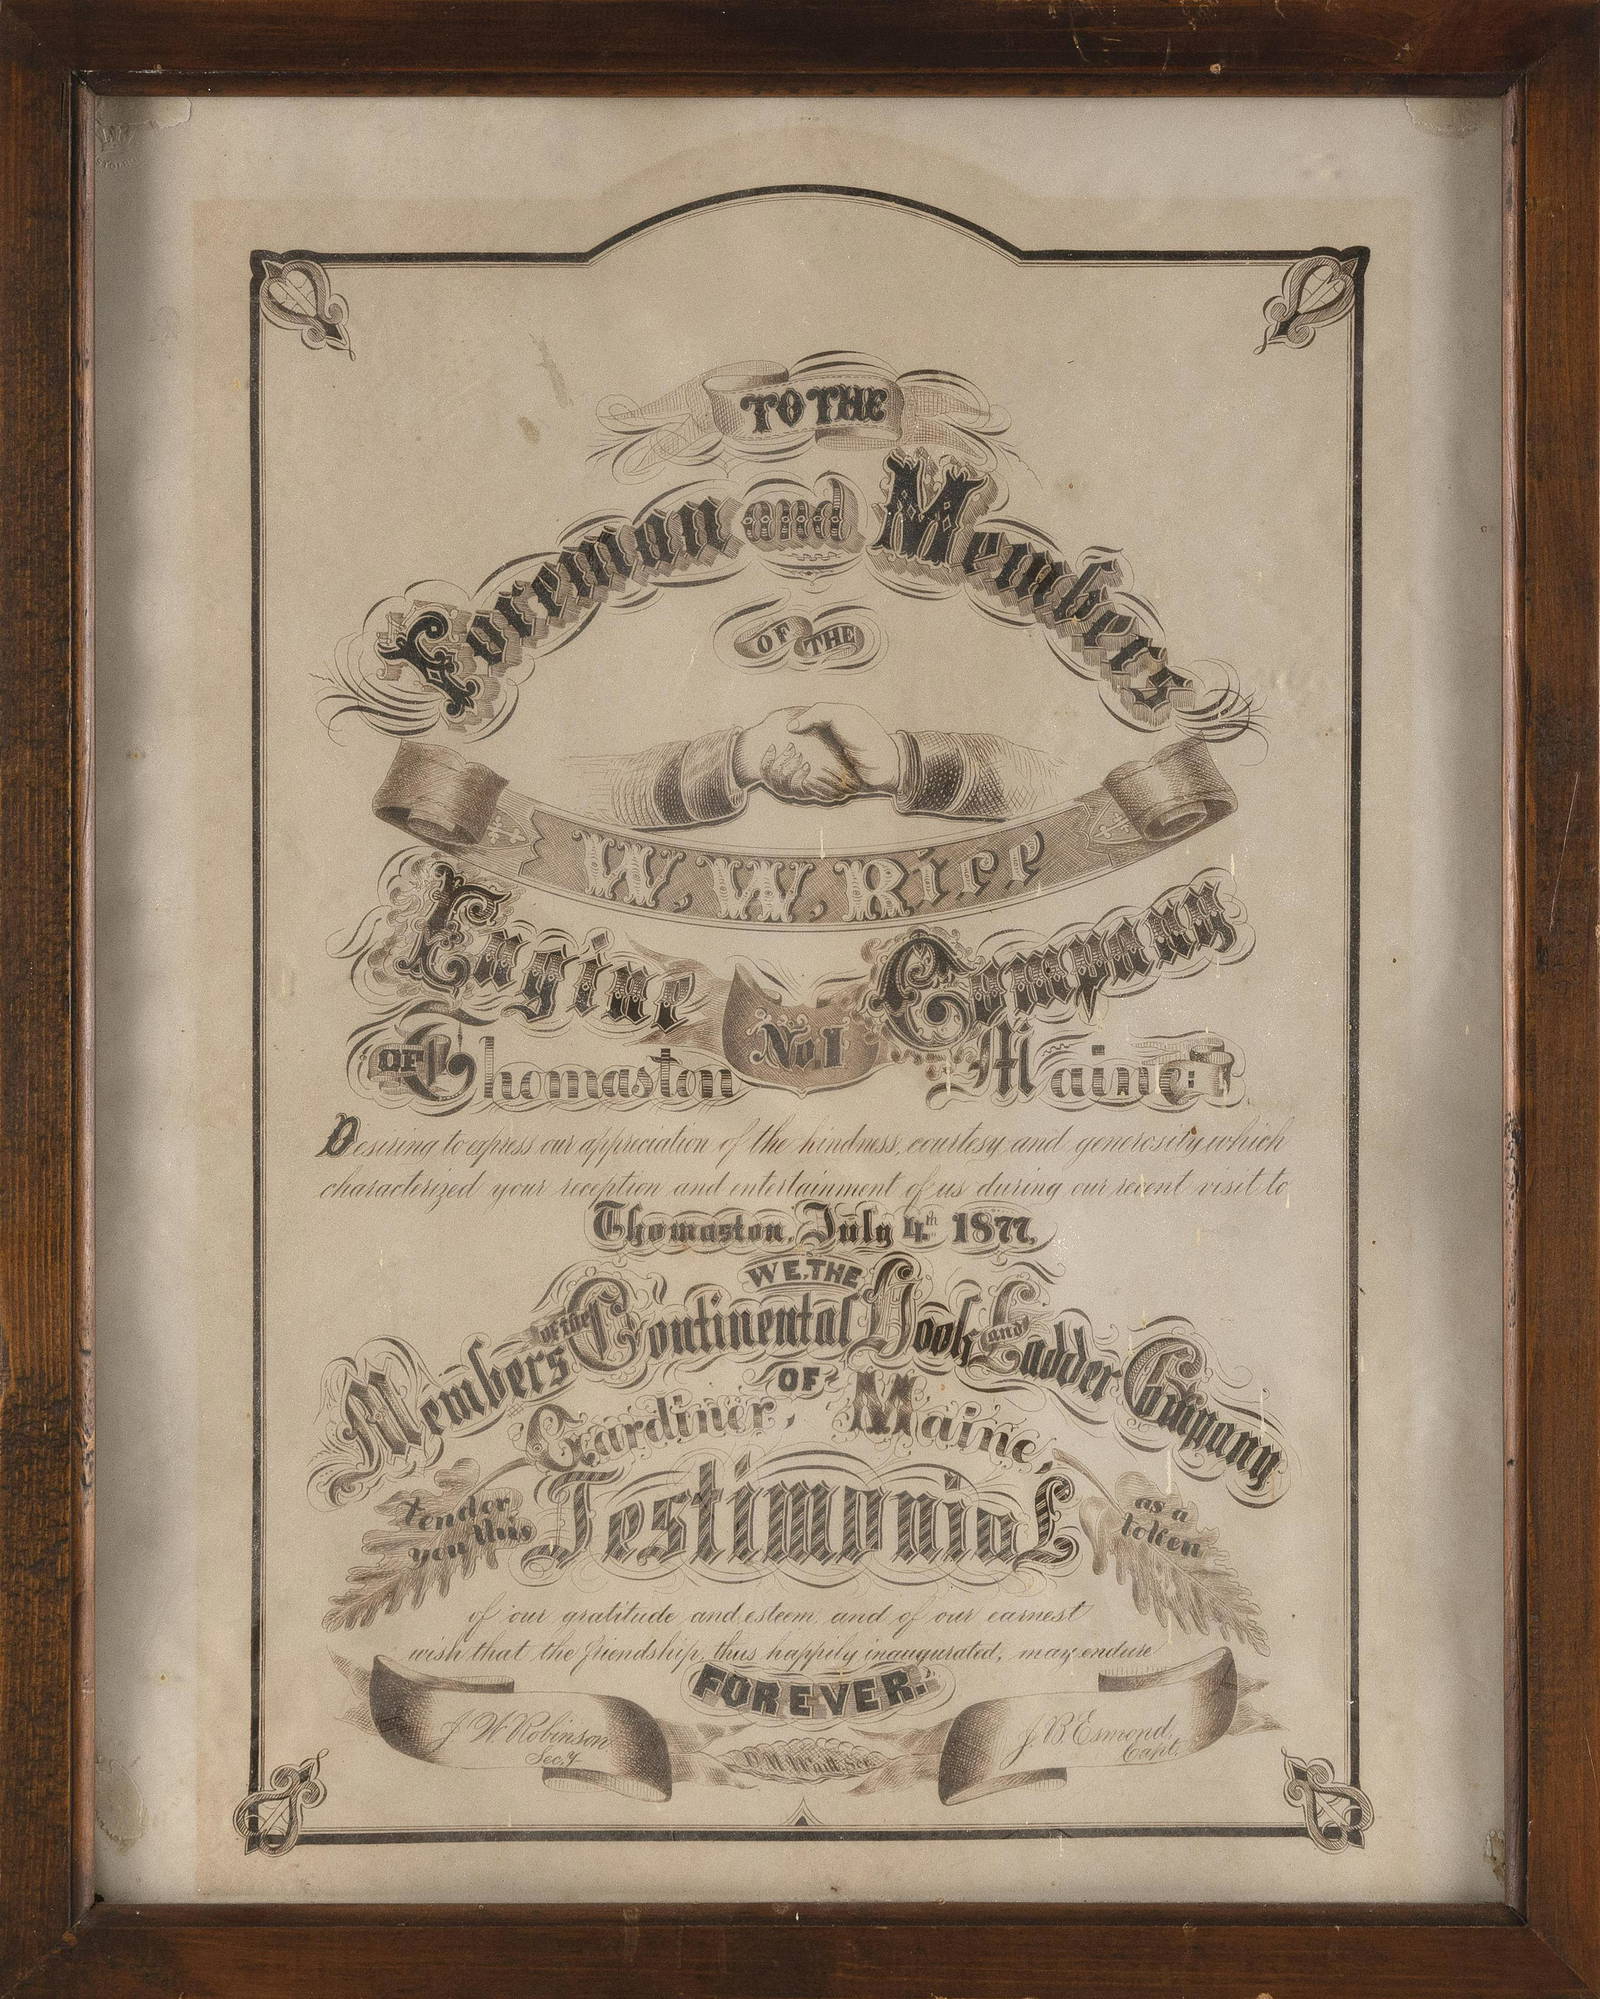 TO THE
Foreman and Members
OF THE
W. W. Rice
Engine Company
No. 1
OF Thomaston Maine.
Desiring to express our appreciation of the kindness, courtesy and generosity which
characterized your reception and entertainment of us during our recent visit to
Thomaston, July 4th 1877,
WE, THE
Members of the Continental Hook and Ladder Company
OF
Gardiner, Maine,
tender you this Testimonial as a token
of our gratitude and esteem and of our earnest
wish that the friendship, thus happily inaugurated, may endure
FOREVER.
J. W. Robinson
Sec.y
J. B. Esmond,
Capt.